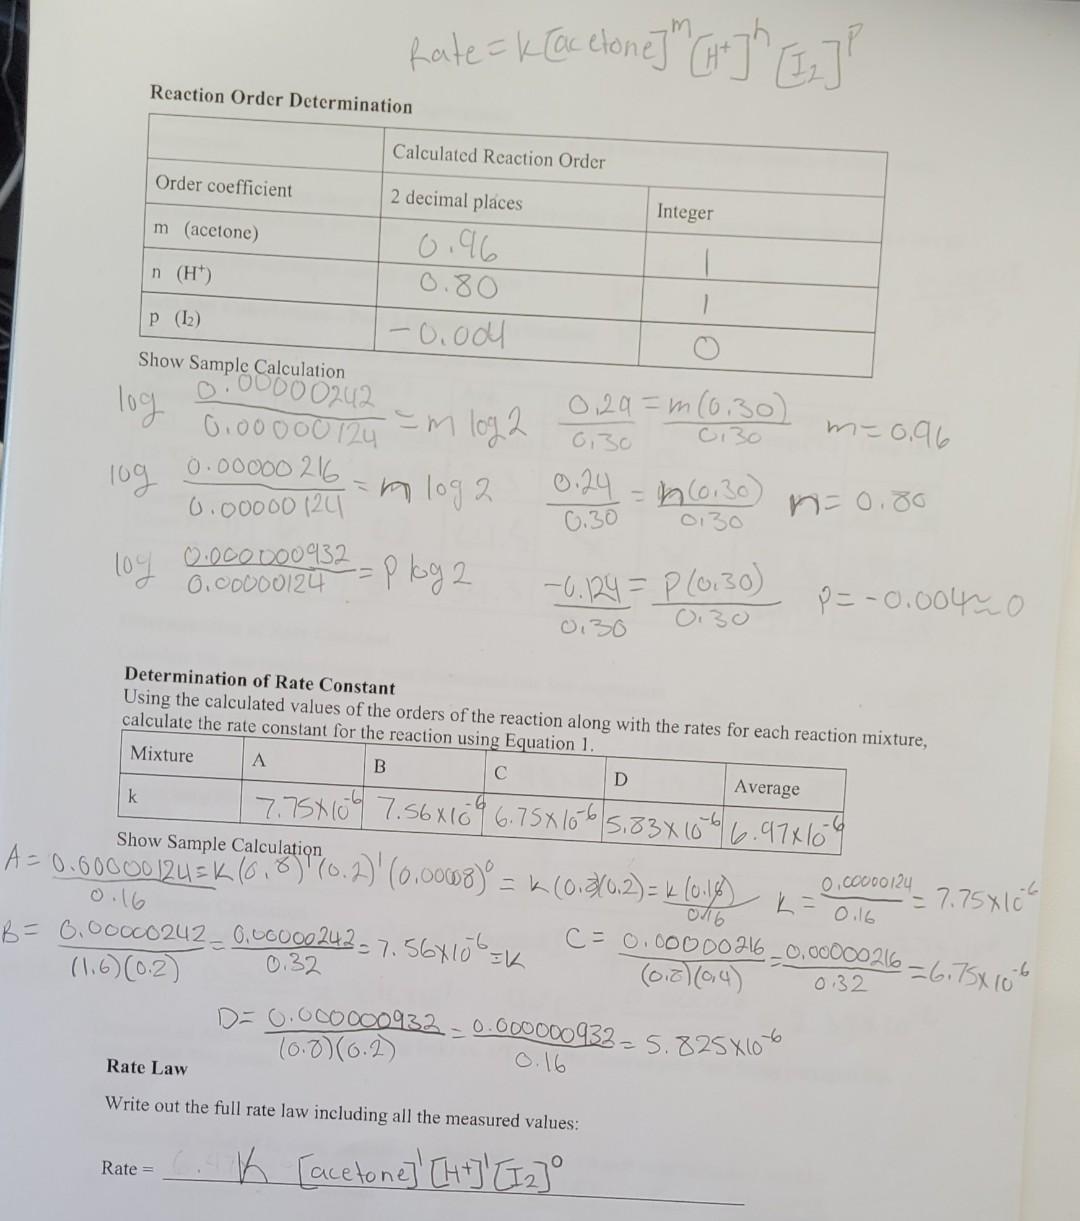 Rate = k[acetone]^m [H+]^n [I2]^p
Reaction Order Determination
Calculated Reaction Order
Order coefficient 2 decimal places Integer
m (acetone) 0.96 1
n (H+) 0.80 1
p (I2) -0.004 0
Show Sample Calculation
log 0.00000242/0.00000124 = m log 2 0.29/0.30 = m(0.30)/0.30 m = 0.96
log 0.00000216/0.00000124 = n log 2 0.24/0.30 = n(0.30)/0.30 n = 0.80
log 0.000000932/0.00000124 = p log 2 -0.124/0.30 = P(0.30)/0.30 P = -0.004 ≈ 0
Determination of Rate Constant
Using the calculated values of the orders of the reaction along with the rates for each reaction mixture,
calculate the rate constant for the reaction using Equation 1.
Mixture A B C D Average
k 7.75x10^-6 7.56x10^-6 6.75x10^-6 5.83x10^-6 6.97x10^-6
Show Sample Calculation
A = 0.00000124/0.16 = K(0.8)^1 (0.2)^1 (0.0008)^0 = k(0.8)(0.2) = k(0.16)/0.16 k = 0.00000124/0.16 = 7.75x10^-6
B = 0.00000242/(1.6)(0.2) = 0.00000242/0.32 = 7.56x10^-6 = K C = 0.00000216/(0.8)(0.4) = 0.00000216/0.32 = 6.75x10^-6
D = 0.000000932/(0.8)(0.2) = 0.000000932/0.16 = 5.825x10^-6
Rate Law
Write out the full rate law including all the measured values:
Rate = K [acetone]^1 [H+]^1 [I2]^0